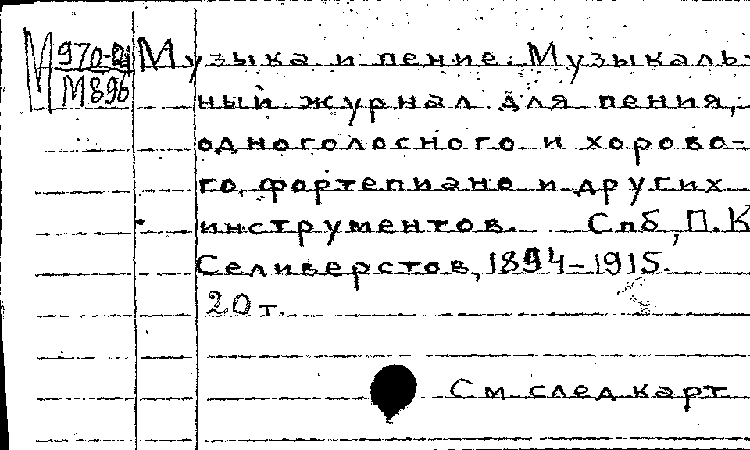 М 970-81
М896
Музыка и пение. Музыкаль-
ный журнал для пения,
одноголосного и хорово-
го, фортепиано и других
инструментов. Спб, П. К
Селиверстов, 1894-1915.
20 т.
См. след. карт